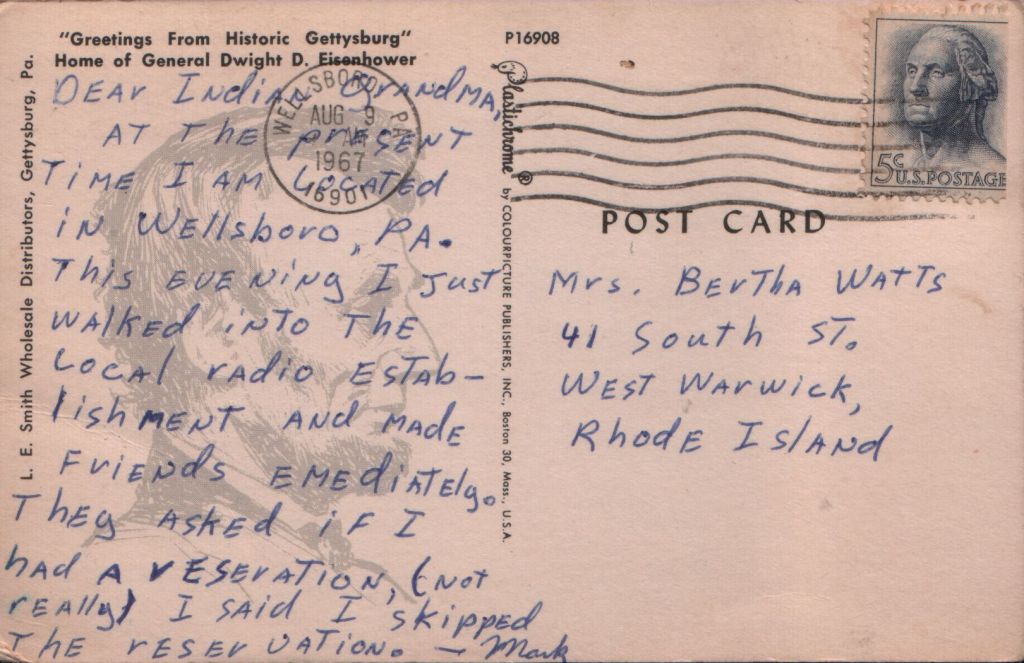 "Greetings From Historic Gettysburg"
Home of General Dwight D. Eisenhower
L. E. Smith Wholesale Distributors, Gettysburg, Pa.
DEAR Indian GRANDMA,
AT THE PRESENT
TIME I AM LOCATED
iN WELLsboro, PA.
THis EVENING I JUST
WALKED iNTO THE
LOCAL rAdio ESTAb-
lishMENT AND MADE
FriENDs EMEDIATELy.
THEy ASKED iF I
HAD A rESErATION, (NOT
rEAlly) I sAid I skipped
THE rESErVATION. — Mark
P16908
Plastichrome ® by COLOURPICTURE PUBLISHERS, INC., Boston 30, Mass., U.S.A.
WELLSBORO, PA
AUG 9
AM
1967
16901
5c
U.S.POSTAGE
POST CARD
Mrs. BErTHA WATTs
41 South ST.
WEST WArwick,
RHodE IsLAND